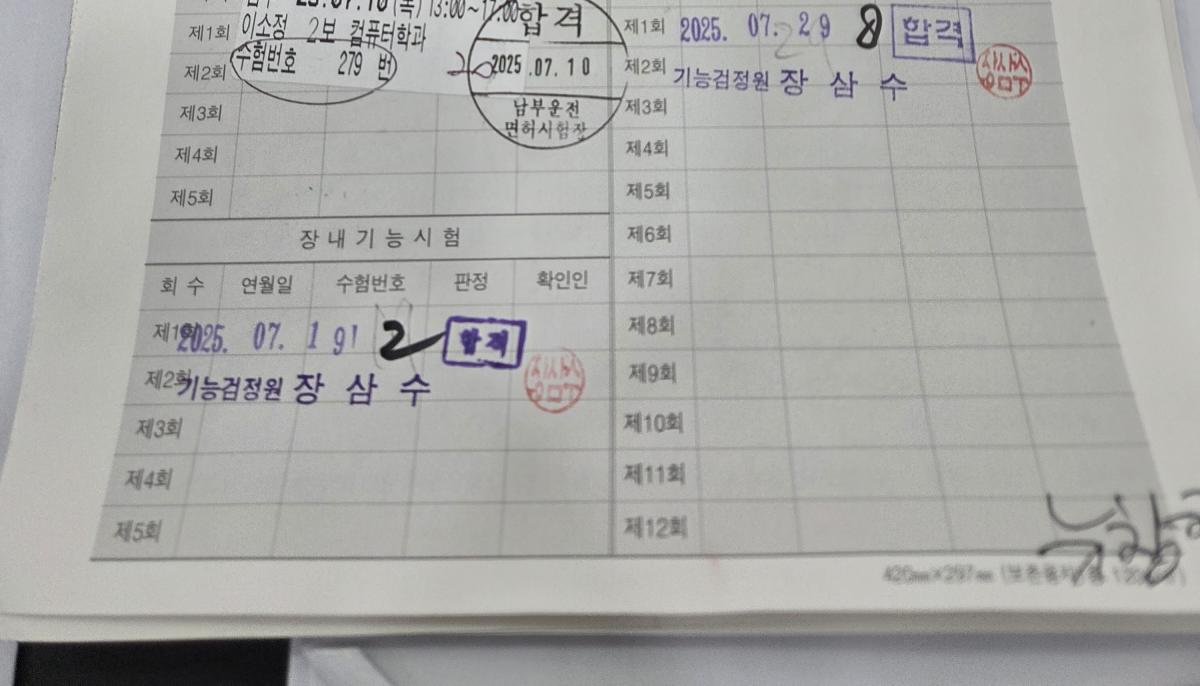 (목) 13:00~17:00
합격
제1회 이소정 2보 컴퓨터학과
제2회 수험번호 279 번
20
2025.07.10
남부운전
면허시험장
제3회
제4회
제5회
장내기능시험
회 수 연월일 수험번호 판정 확인인
제1회 2025. 07. 19! 2 합격
제2회 기능검정원 장 삼 수
제3회
제4회
제5회
제1회 2025. 07. 29 8 합격
제2회 기능검정원 장 삼 수
제3회
제4회
제5회
제6회
제7회
제8회
제9회
제10회
제11회
제12회
420㎜×297㎜